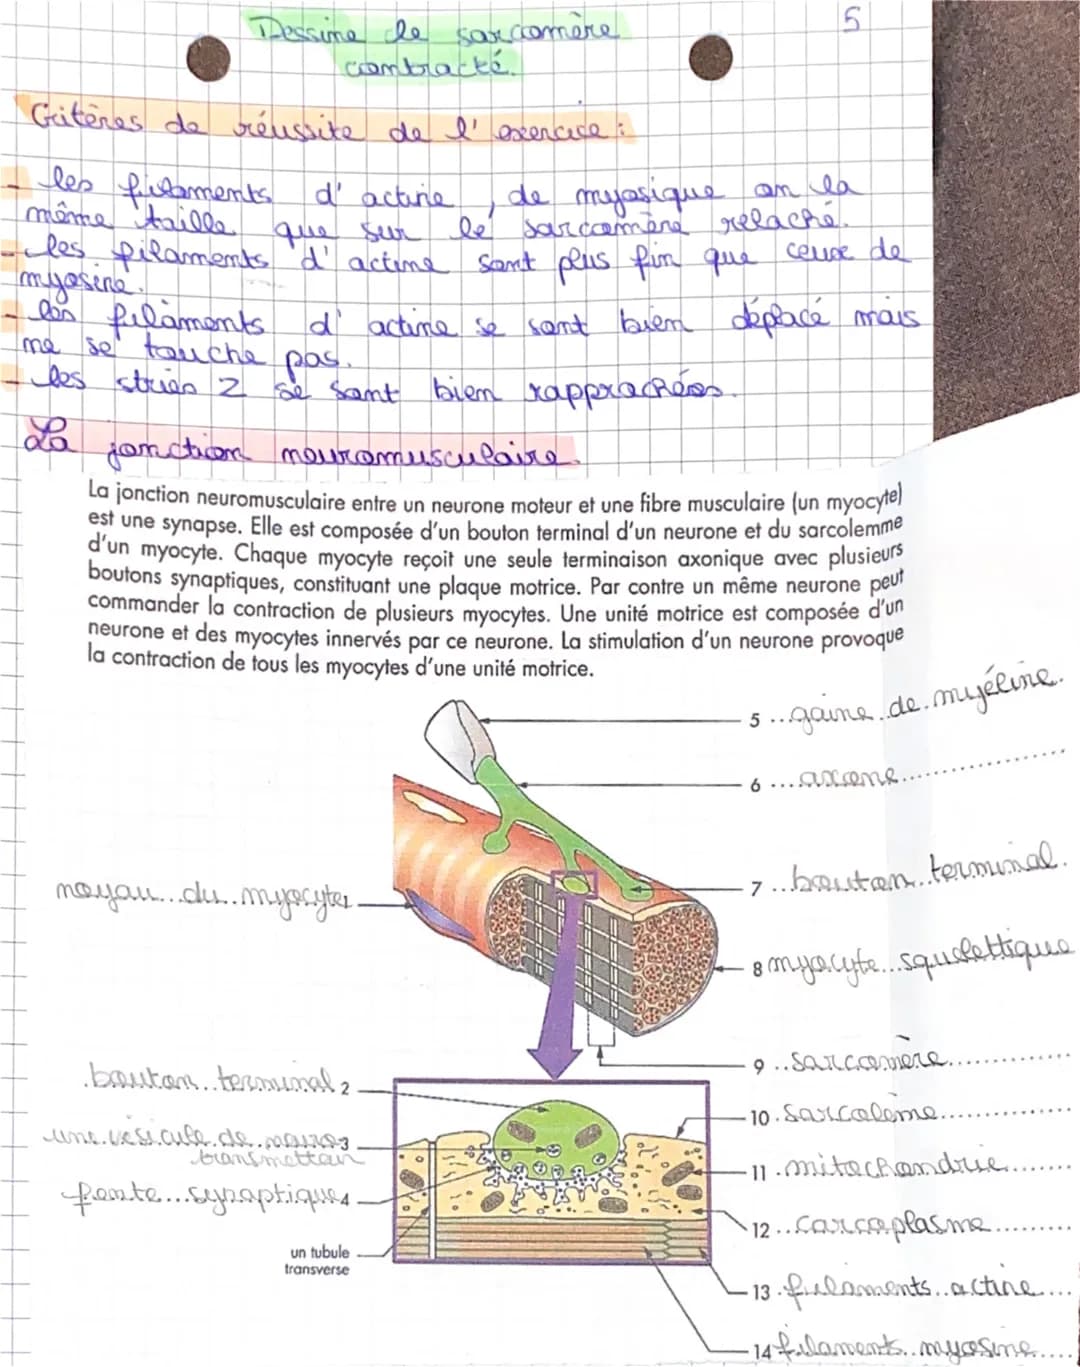 5
Dessine le sarcomère
contracté.
Critères de réussite de l'exercice :
- les filaments d'actine, de myosique on la
même taille que sur le sarcomère relaché.
- les filaments d'actine sont plus fin que ceux de
myosine.
- les filaments d'actine se sont bien déplacé mais
ne se touche pas.
- les stries Z se sont bien rapprochées.
La jonction neuromusculaire.
La jonction neuromusculaire entre un neurone moteur et une fibre musculaire (un myocyte)
est une synapse. Elle est composée d'un bouton terminal d'un neurone et du sarcolemme
d'un myocyte. Chaque myocyte reçoit une seule terminaison axonique avec plusieurs
boutons synaptiques, constituant une plaque motrice. Par contre un même neurone peut
commander la contraction de plusieurs myocytes. Une unité motrice est composée d'un
neurone et des myocytes innervés par ce neurone. La stimulation d'un neurone provoque
la contraction de tous les myocytes d'une unité motrice.
5 ...gaine.de.myéline.
6 ....axone..............
7 ..bouton..terminal.
noyau...du..myocyte 1
8 myocyte...squelettique
9 ..sarcomère..............
.bouton..terminal 2
10 .Sarcolème..............
une.vésicule.de..neuro 3
transmetteur
11 .mitochondrie.........
fente...synaptique 4
12 ..sarcoplasme.........
un tubule
transverse
13 .filaments..actine....
14 filaments..myosine....